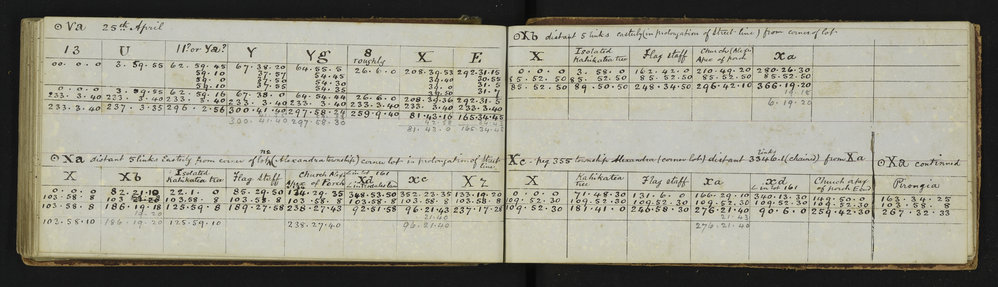 ⊙ Va 25th April
13 U 11? or Ya? Y Yg 8 roughly X E
00. 0. 0 3. 59. 55 62. 59. 45 67. 38. 20 64. 55. 5 26. 6. 0 208. 39. 53 292. 31. 15
59. 10 37. 57 54. 45 39. 40 30. 55
59. 0 37. 55 54. 30 39. 0 31. 5
59. 10 37. 55 54. 35 39. 50 31. 7
0. 0. 0 3. 59. 55 62. 59. 16 67. 38. 0 64. 54. 44 26. 6. 0 208. 39. 36 292. 31. 5
233. 3. 40 233. 3. 40 233. 3. 40 233. 3. 40 233. 3. 40 233. 3. 40 233. 3. 40 233. 3. 40
233. 3. 40 237. 3. 35 296. 2. 56 300. 41. 40 297. 58. 29 259. 9. 40 81. 43. 16 165. 34. 45
300. 41. 40 297. 58. 30
81. 43. 0 165. 34. 45
⊙ Xa distant 5 links Easterly from corner of lot (Alexandra township) corner lot in prolongation of street line
X Xb Isolated Kahikatea tree Flag Staff Church Alex. Apex of Porch Xd in lot 161 xc Xz
0. 0. 0 82. 21. 10 22. 1. 0 85. 29. 50 134. 29. 35 348. 53. 50 352. 23. 35 133. 19. 20
103. 58. 8 103. 58. 8 103. 58. 8 103. 58. 8 103. 58. 8 103. 58. 8 103. 58. 8
103. 58. 8 186. 19. 18 125. 59. 8 189. 27. 58 238. 27. 43 92. 51. 58 96. 21. 43 237. 17. 28
19. 20 21. 40
103. 58. 10 186. 19. 20 125. 59. 10 238. 27. 40 96. 21. 40
⊙ Xb distant 5 links easterly (in prolongation of Street line) from corner of lot.
X Isolated Kahikatea tree Flag staff Church (Alex) Apex of porch Xa
0. 0. 0 3. 58. 0 163. 42. 0 210. 49. 20 280. 26. 30
85. 52. 50 85. 52. 50 85. 52. 50 85. 52. 50 85. 52. 50
85. 52. 50 89. 50. 50 248. 34. 50 296. 42. 10 366. 19. 20
19. 18
6. 19. 20
Xc - peg 355 township Alexandra (corner lot) distant 3346.1 links (chained) from Xa
X Kahikatea tree Flag staff xa xd in lot 161 Church apex of porch End
0. 0. 0 71. 48. 30 131. 6. 0 166. 29. 0 340. 13. 30 149. 50. 0
109. 52. 30 109. 52. 30 109. 52. 30 109. 52. 30 109. 52. 30 109. 52. 30
109. 52. 30 181. 41. 0 246. 58. 30 276. 21. 40 90. 6. 0 259. 42. 30
21. 43
276. 21. 40
⊙ Xa continued
Pirongia
163. 34. 25
103. 58. 8
267. 32. 33